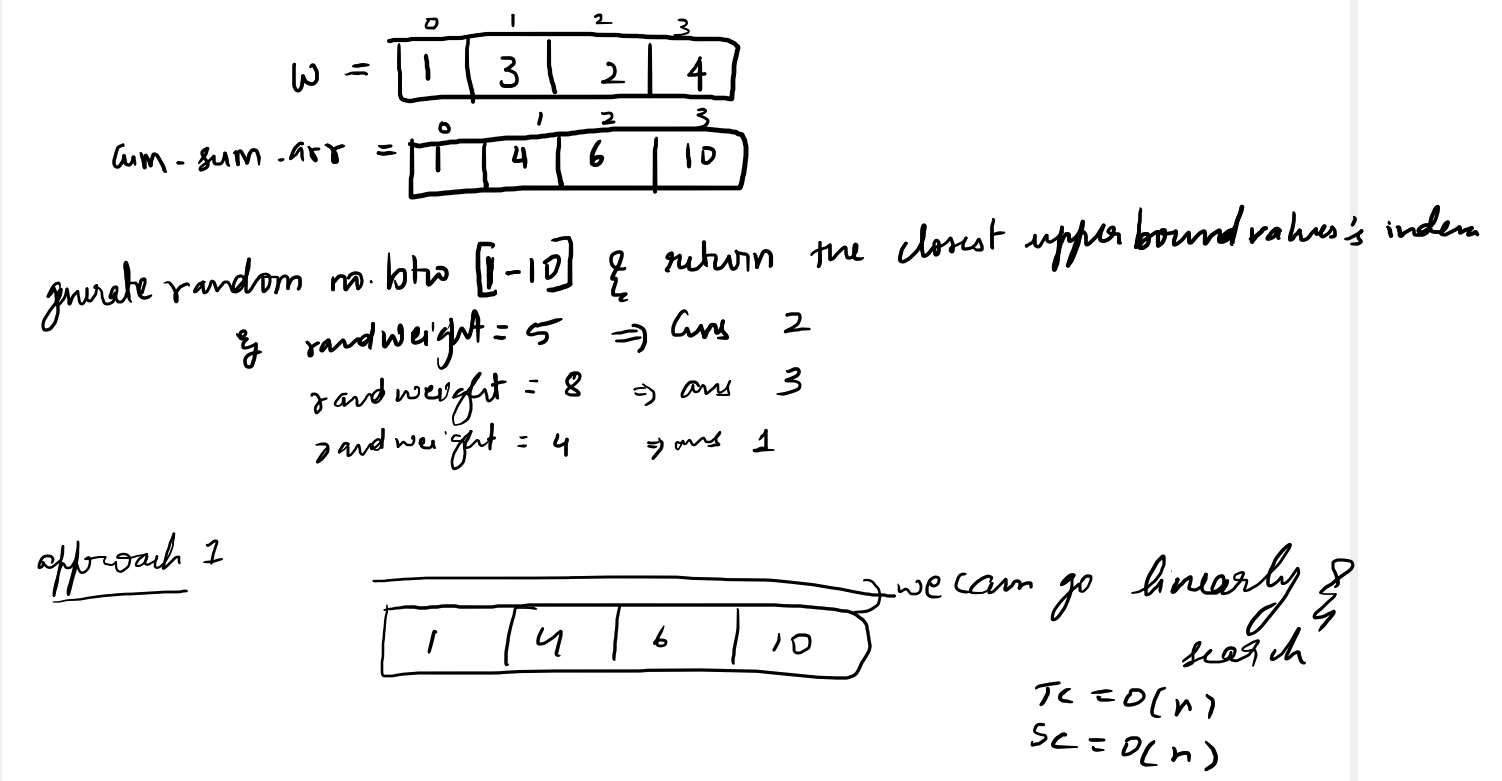 0 1 2 3
W = 1 3 2 4
0 1 2 3
Cum-sum-arr = 1 4 6 10
generate random no. btw [1-10] & return the closest upper bound values's index
rand weight = 5 ⇒ ans 2
rand weight = 8 ⇒ ans 3
rand weight = 4 ⇒ ans 1
approach 1
we can go linearly &
1 4 6 10
search
TC = O(n)
SC = O(n)